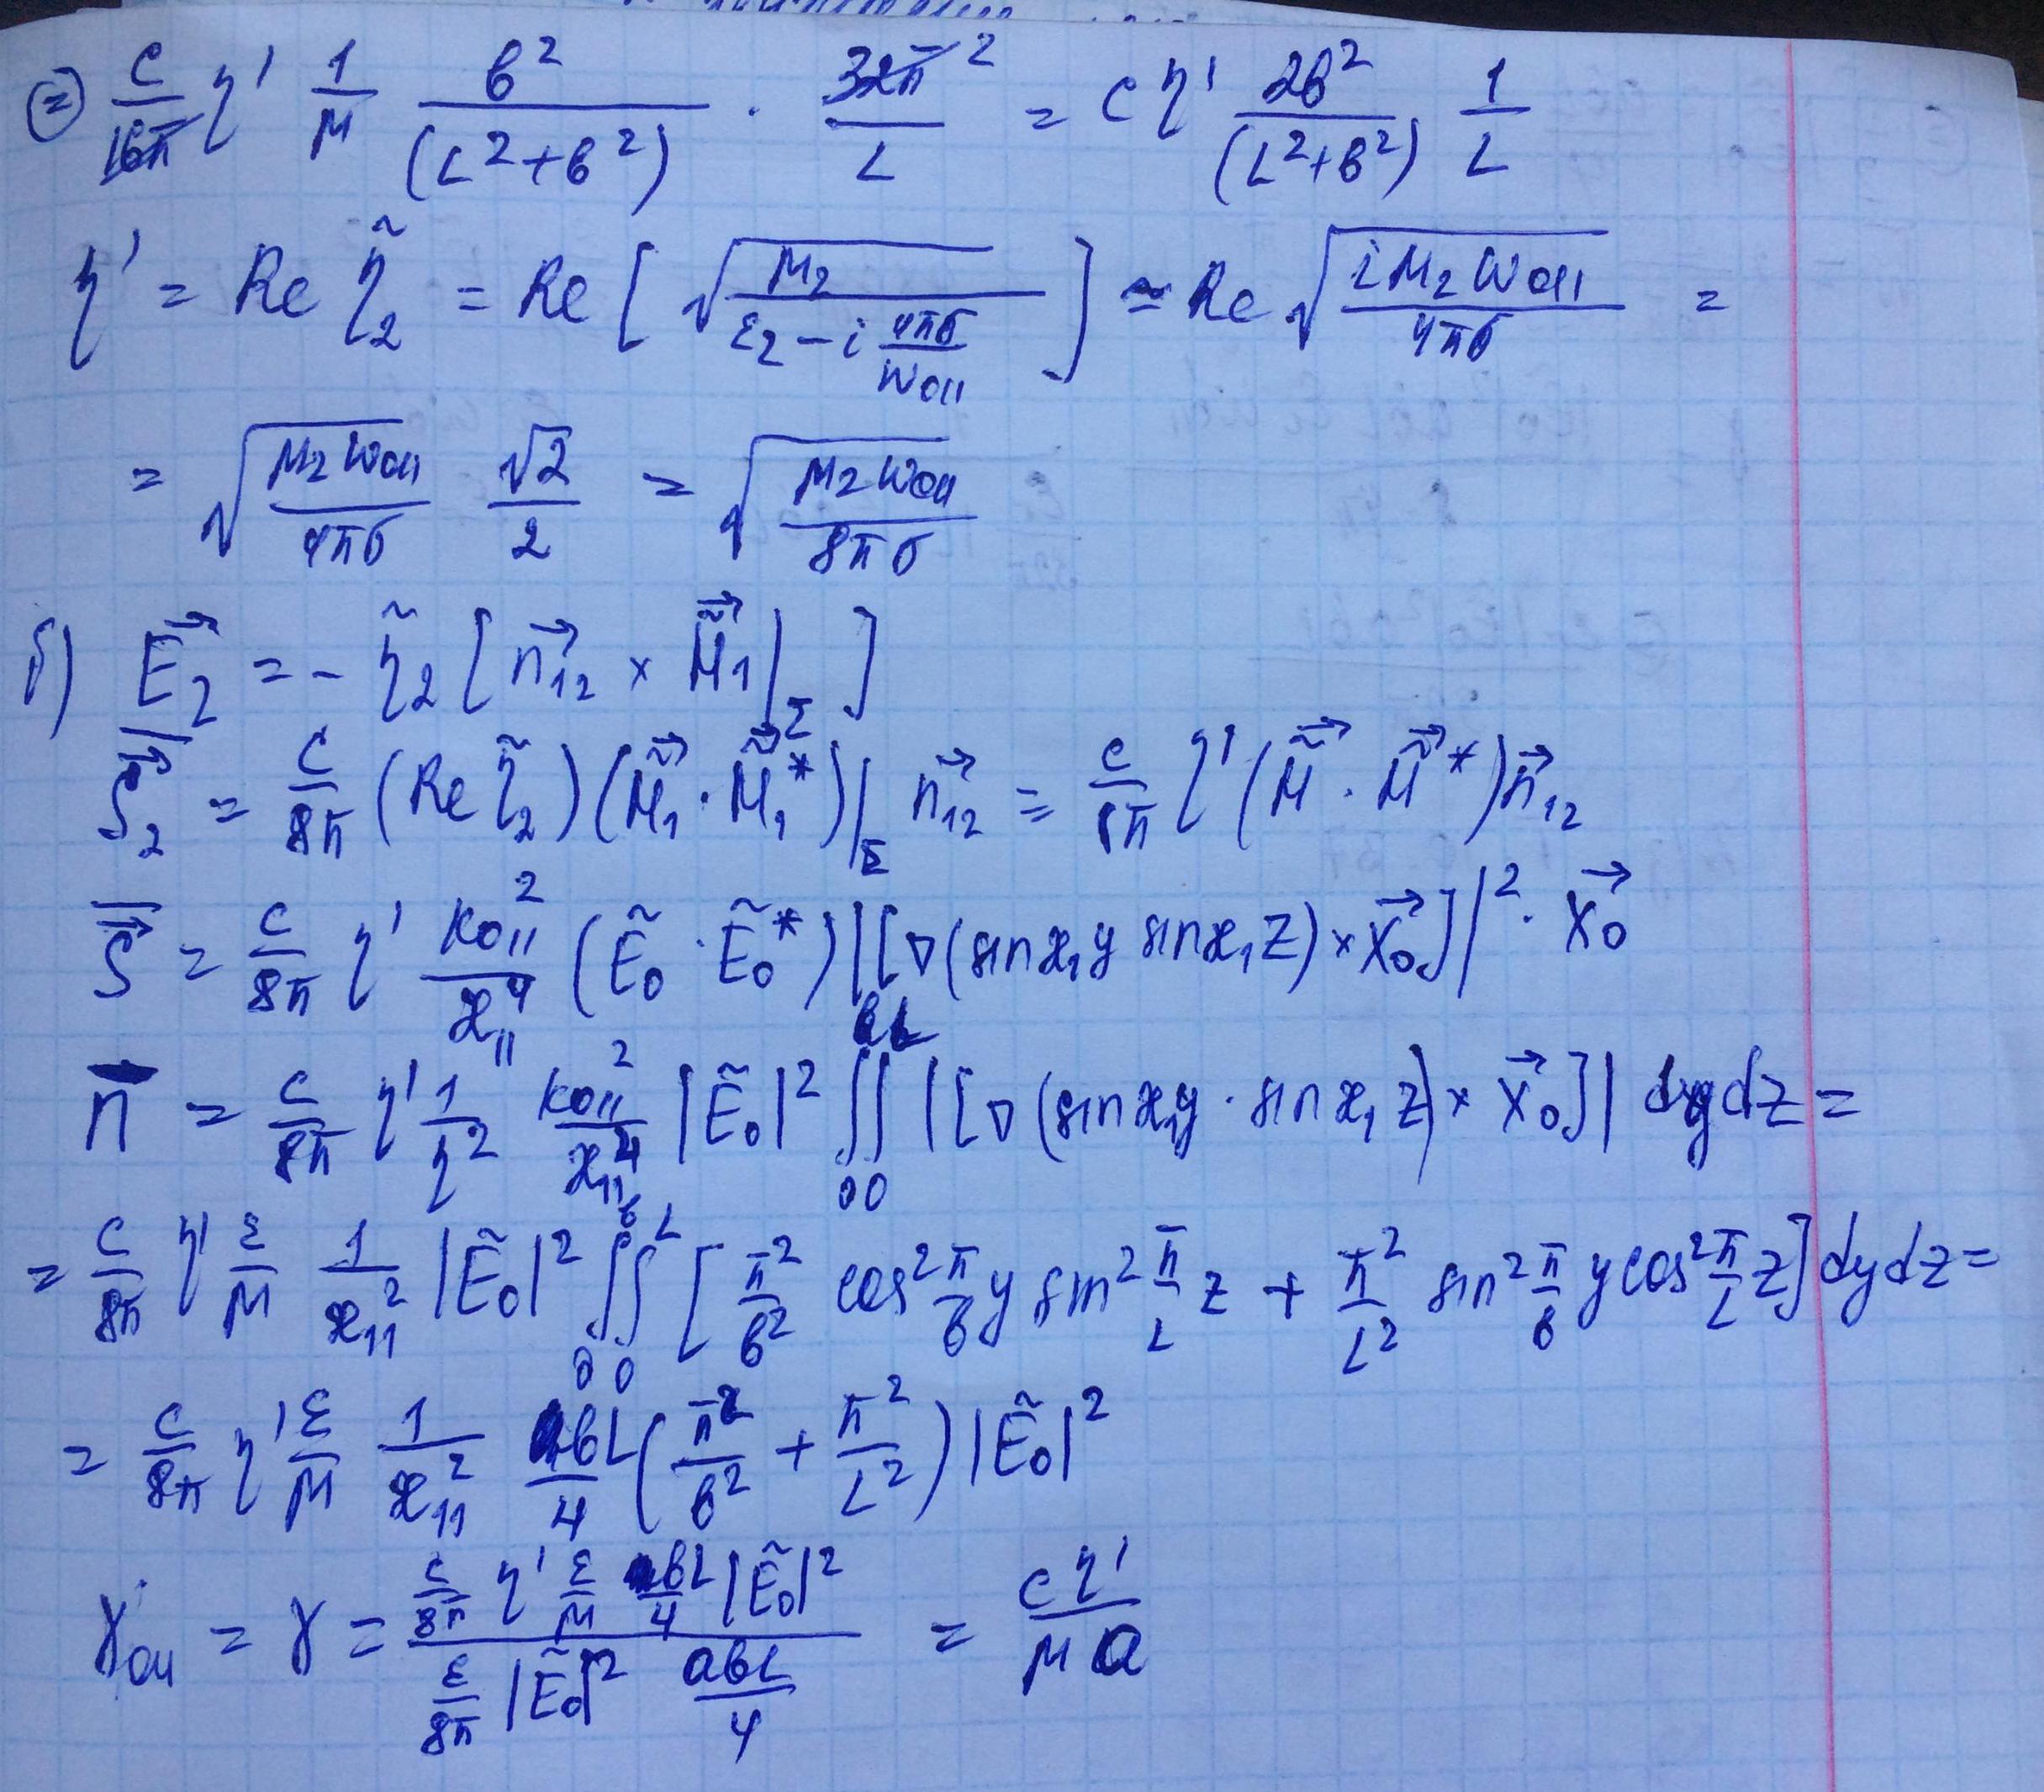 = c/16π η' 1/μ b²/(L²+b²) · 32π²/L = c η' 2b²/(L²+b²) 1/L
η' = Re η̃₂ = Re [ √(μ₂/(ε₂ - i 4πσ/ω₀₁₁)) ] ≃ Re √(i μ₂ ω₀₁₁/4πσ) =
= √(μ₂ ω₀₁₁/4πσ) √2/2 = √(μ₂ ω₀₁₁/8πσ)
б) E₂→ = - η̃₂ [ n₁₂→ × H̃₁→|_Σ ]
S₂→ = c/8π (Re η̃₂)(H̃₁→ · H̃₁→*)|_Σ n₁₂→ = c/8π η' (H̃→ · H̃→*) n→₁₂
S→ = c/8π η' k₀₁₁²/æ₁₁⁴ (Ẽ₀ · Ẽ₀*) |[∇(sinæ₁y sinæ₁z) × x₀→]|² · x₀→
П = c/8π η' 1/η² k₀₁₁²/æ₁₁⁴ |Ẽ₀|² ∫₀∫₀^bL |[∇(sinæ₁y · sinæ₁z) × x₀→]| dydz =
= c/8π η' ε/μ 1/æ₁₁² |Ẽ₀|² ∫₀^b∫₀^L [π²/b² cos² π/b y sin² π/L z + π²/L² sin² π/b y cos² π/L z] dydz =
= c/8π η' ε/μ 1/æ₁₁² bL/4 (π²/b² + π²/L²) |Ẽ₀|²
γ₀₁₁ = γ = (c/8π η' ε/μ bL/4 |Ẽ₀|²)/(ε/8π |Ẽ₀|² abL/4) = cη'/μa